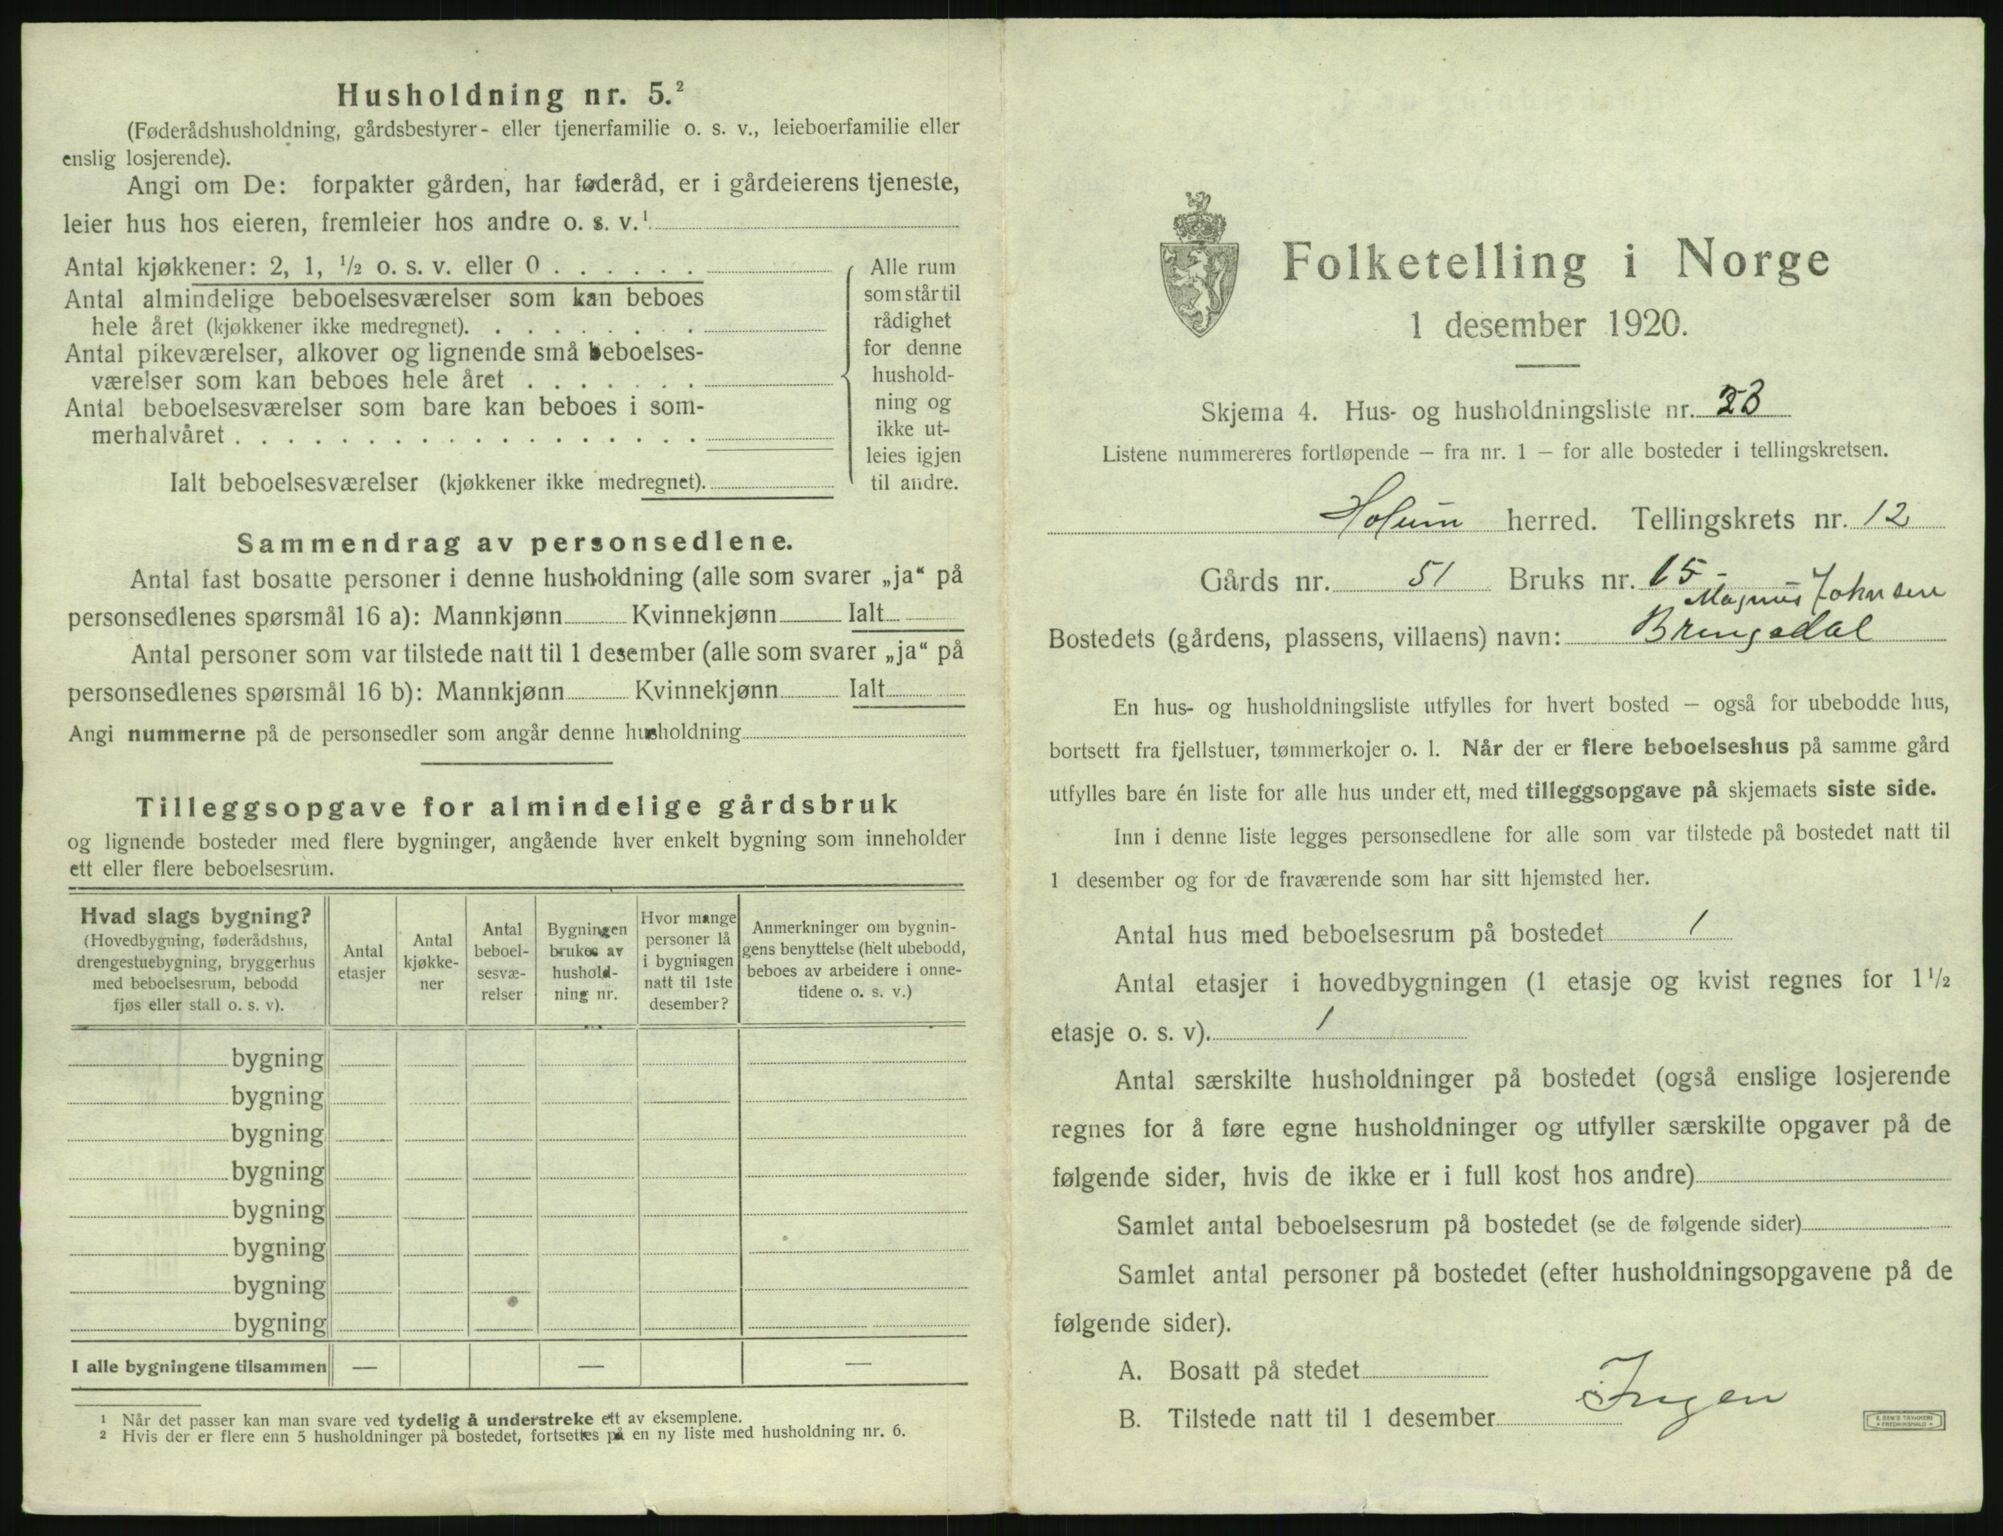 Husholdning nr. 5.²
(Føderådshusholdning, gårdsbestyrer- eller tjenerfamilie o. s. v., leieboerfamilie eller
enslig losjerende).
Angi om De: forpakter gården, har føderåd, er i gårdeierens tjeneste,
leier hus hos eieren, fremleier hos andre o. s. v.¹
Antal kjøkkener: 2, 1, ½ o. s. v. eller 0 . . . . . .
Antal almindelige beboelsesværelser som kan beboes
hele året (kjøkkener ikke medregnet). . . . . . . .
Antal pikeværelser, alkover og lignende små beboelses-
værelser som kan beboes hele året . . . . . . .
Antal beboelsesværelser som bare kan beboes i som-
merhalvåret . . . . . . . . . . . . . . . . .
Ialt beboelsesværelser (kjøkkener ikke medregnet).
Alle rum
som står til
rådighet
for denne
hushold-
ning og
ikke ut-
leies igjen
til andre.
Sammendrag av personsedlene.
Antal fast bosatte personer i denne husholdning (alle som svarer „ja“ på
personsedlenes spørsmål 16 a): Mannkjønn Kvinnekjønn Ialt
Antal personer som var tilstede natt til 1 desember (alle som svarer „ja“ på
personsedlenes spørsmål 16 b): Mannkjønn Kvinnekjønn Ialt
Angi nummerne på de personsedler som angår denne husholdning
Tilleggsopgave for almindelige gårdsbruk
og lignende bosteder med flere bygninger, angående hver enkelt bygning som inneholder
ett eller flere beboelsesrum.
Hvad slags bygning?
(Hovedbygning, føderådshus,
drengestuebygning, bryggerhus
med beboelsesrum, bebodd
fjøs eller stall o. s. v).
Antal
etasjer
Antal
kjøkke-
ner
Antal
beboel-
sesvæ-
relser
Bygningen
brukes av
hushold-
ning nr.
Hvor mange
personer lå
i bygningen
natt til 1ste
desember?
Anmerkninger om bygnin-
gens benyttelse (helt ubebodd,
beboes av arbeidere i onne-
tidene o. s. v.)
bygning
bygning
bygning
bygning
bygning
bygning
bygning
bygning
I alle bygningene tilsammen — — —
¹ Når det passer kan man svare ved tydelig å understreke ett av eksemplene.
² Hvis der er flere enn 5 husholdninger på bostedet, fortsettes på en ny liste med husholdning nr. 6.
Folketelling i Norge
1 desember 1920.
Skjema 4. Hus- og husholdningsliste nr. 23
Listene nummereres fortløpende — fra nr. 1 — for alle bosteder i tellingskretsen.
Holum herred. Tellingskrets nr. 12
Gårds nr. 51 Bruks nr. 15 -
Magnus Johnsen
Bostedets (gårdens, plassens, villaens) navn: Bringsdal
En hus- og husholdningsliste utfylles for hvert bosted — også for ubebodde hus,
bortsett fra fjellstuer, tømmerkojer o. l. Når der er flere beboelseshus på samme gård
utfylles bare én liste for alle hus under ett, med tilleggsopgave på skjemaets siste side.
Inn i denne liste legges personsedlene for alle som var tilstede på bostedet natt til
1 desember og for de fraværende som har sitt hjemsted her.
Antal hus med beboelsesrum på bostedet 1
Antal etasjer i hovedbygningen (1 etasje og kvist regnes for 1½
etasje o. s. v). 1
Antal særskilte husholdninger på bostedet (også enslige losjerende
regnes for å føre egne husholdninger og utfyller særskilte opgaver på de
følgende sider, hvis de ikke er i full kost hos andre)
Samlet antal beboelsesrum på bostedet (se de følgende sider)
Samlet antal personer på bostedet (efter husholdningsopgavene på de
følgende sider).
A. Bosatt på stedet
B. Tilstede natt til 1 desember Ingen